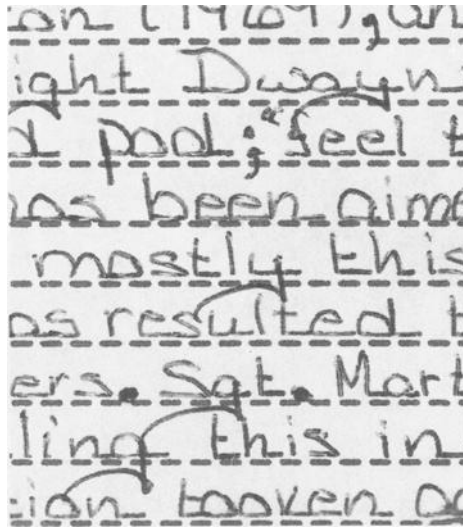 on (1969), an
ight Dwayn
d pool; "feel t
has been aime
mostly this
as resulted t
ers. Sgt. Mart
ling this in
tion tooken